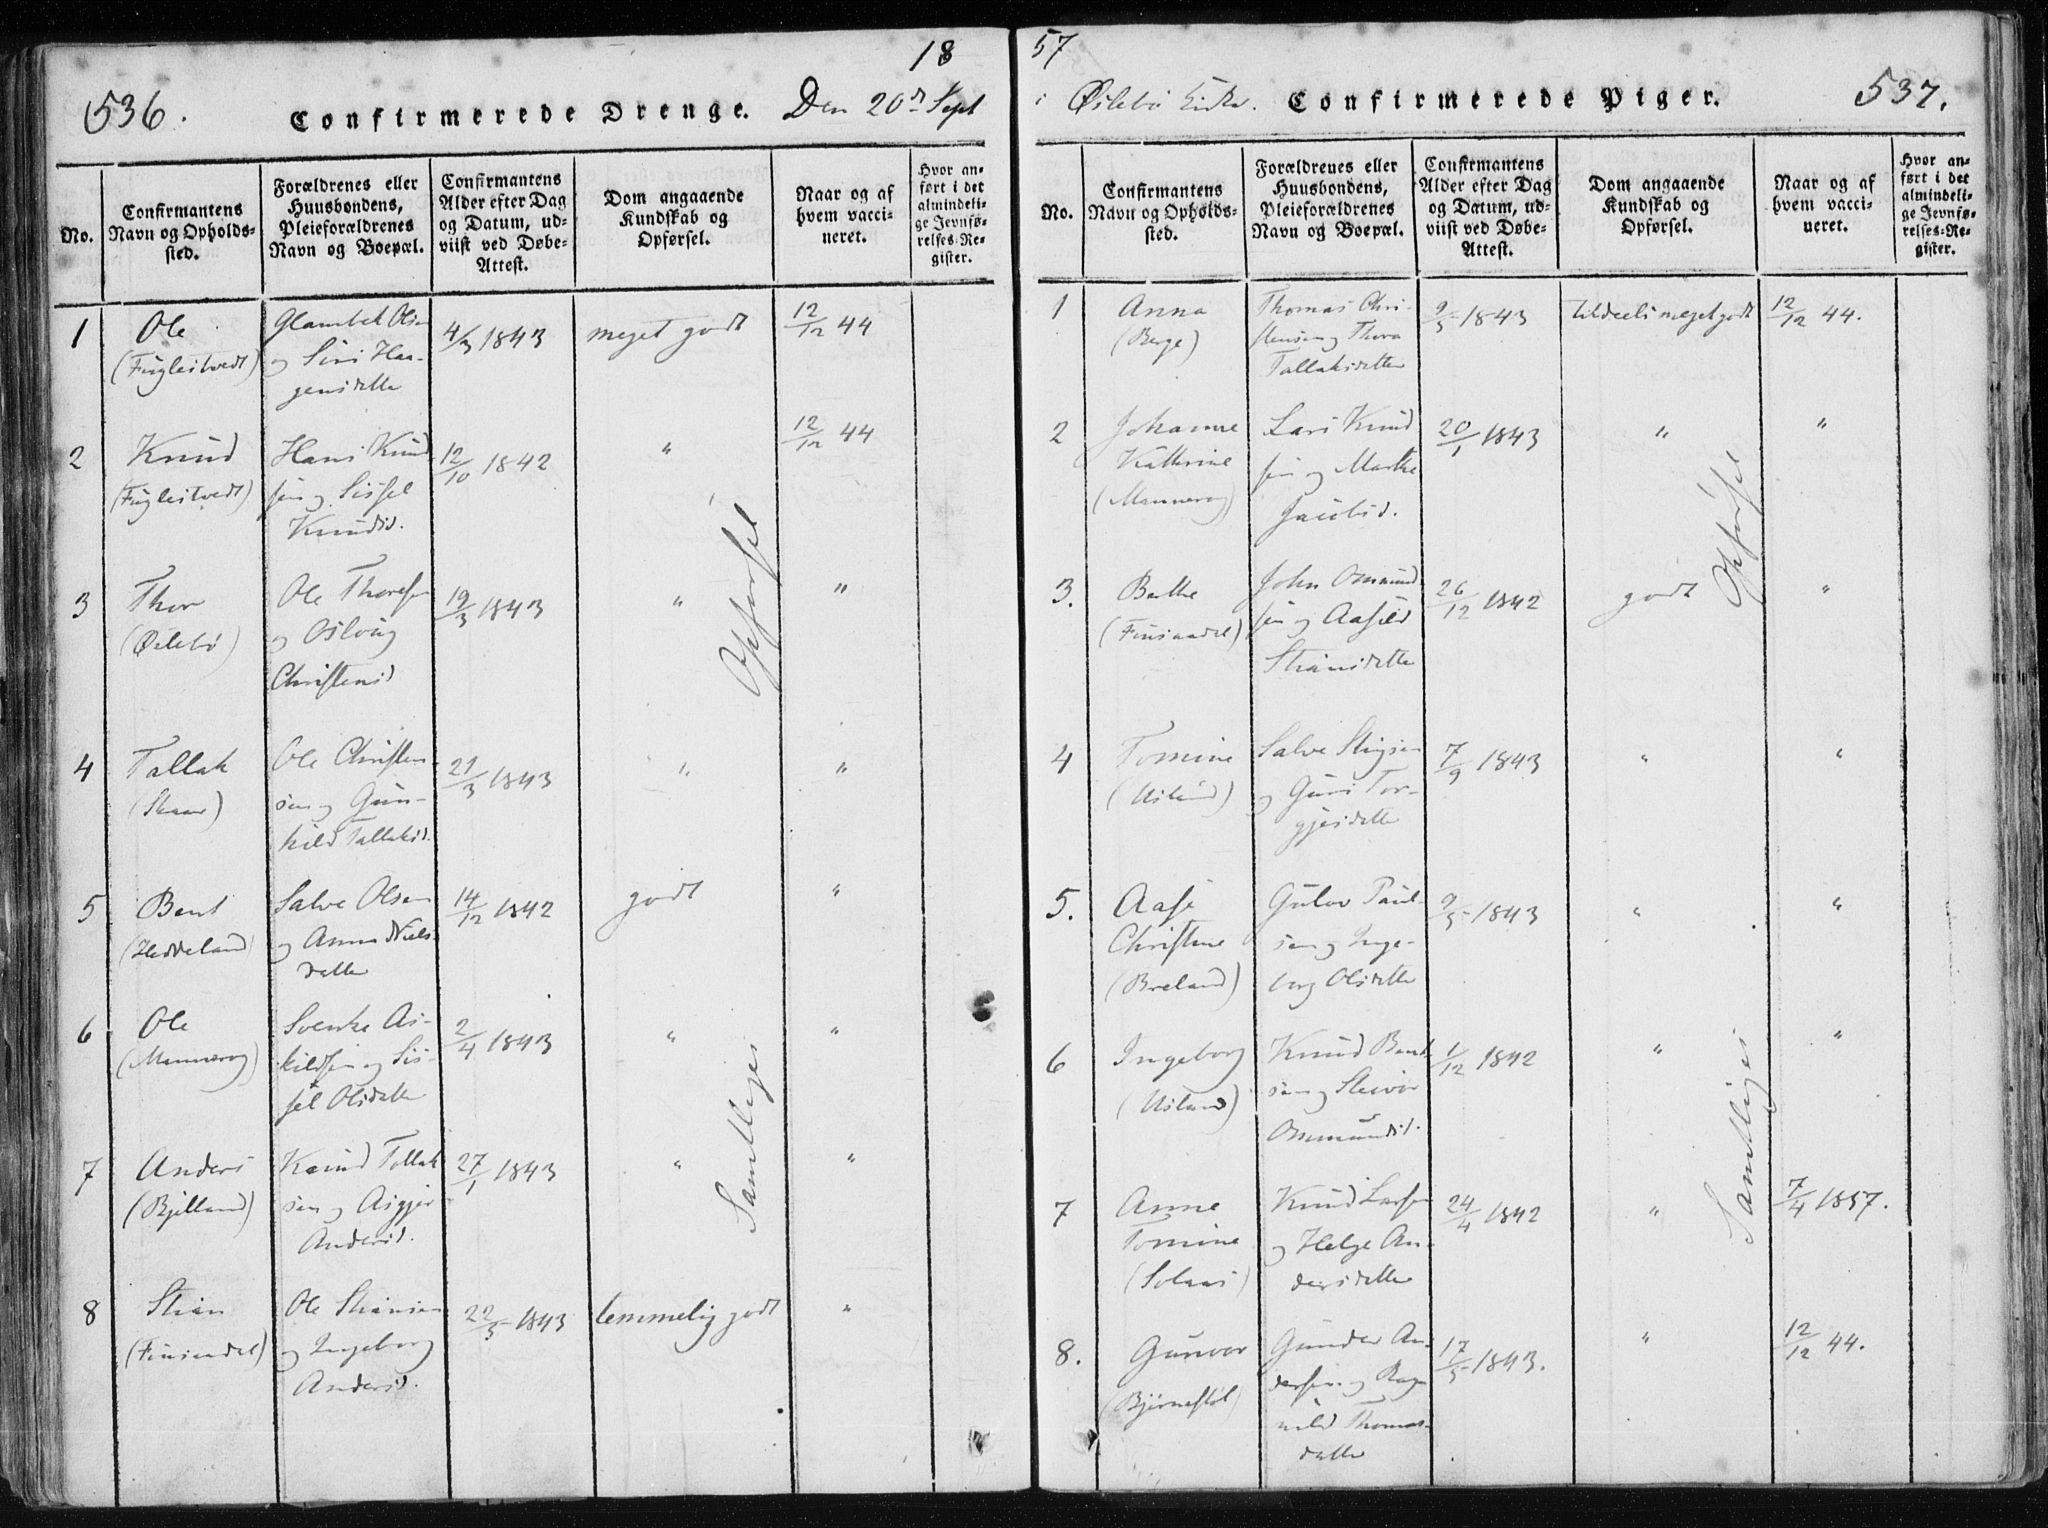 18
536.
Confirmerede Drenge. Den 20de Sept
No.
Confirmantens
Navn og Opholds-
sted.
Forældrenes eller
Huusbondens,
Pleieforældrenes
Navn og Boepæl.
Confirmantens
Alder efter Dag
og Datum, ud-
viist ved Døbe-
Attest.
Dom angaaende
Kundskab og
Opførsel.
Naar og af
hvem vacci-
neret.
Hvor an-
ført i det
almindeli-
ge Jevnfø-
relses-Re-
gister.
1
Ole
(Fuglestvedt)
Glambek Olsen
og Siri Haa-
gensdatte
4/3 1843
meget godt
12/12 44
2
Knud
(Fuglestvedt)
Hans Knud-
sen og Sissel
Knudsd.
12/10 1842
"
12/12 44
3
Thor
(Øslebø)
Ole Thoresen
og Oslaug
Christensd
19/3 1843
"
"
4
Tallak
(Skaar)
Ole Christen-
sen og Gun-
hild Tallaksd.
21/3 1843
"
"
5
Bent
(Heddeland)
Salve Olsen
og Anne Niels-
datte
14/12 1842
godt
"
6
Ole
(Mannerog)
Svenke As-
kildsen og Sis-
sel Olsdatte
2/4 1843
"
"
7
Anders
(Bjelland)
Knud Tallak-
sen og Asgjer
Andersd.
27/1 1843
"
"
8
Stian
(Finsaadal)
Ole Stiansen
og Ingeborg
Andersd.
22/5 1843
temmelig godt
"
Samtliges Opførsel
57
i Øslebø Kirke. Confirmerede Piger.
537.
No.
Confirmantens
Navn og Opholds-
sted.
Forældrenes eller
Huusbondens,
Pleieforældrenes
Navn og Boepæl.
Confirmantens
Alder efter Dag
og Datum, ud-
viist ved Døbe-
Attest.
Dom angaaende
Kundskab og
Opførsel.
Naar og af
hvem vacci-
neret.
Hvor an-
ført i det
almindeli-
ge Jevnfø-
relses-Re-
gister.
1
Anna
(Berge)
Thomas Chri-
stensen og Thora
Tallaksdatter
9/5 1843
tildeels meget godt
12/12 44.
2
Johanne
Kathrine
(Mannerog)
Lars Knud
sen og Marthe
Jacobsd.
20/1 1843
"
"
3.
Berthe
(Finsaadal)
John Osmund-
sen og Aasild
Stiansdatte
26/12 1842
godt
"
4
Tomine
(Usland)
Salve Stigsen
og Guri Tor-
gjesdatte
7/9 1843
"
"
5.
Aase
Christine
(Breland)
Gulov Paul-
sen og Inge-
borg Olsdatte
9/5 1843
"
"
6
Ingeborg
(Usland)
Knud Bent
sen og Steivor
Ommundsd.
1/12 1842
"
"
7
Anne
Tomine
(Solaas)
Knud Larsen
og Helge An-
dersdatte
24/4 1842
"
7/4 1857.
8.
Gunvor
(Bjørnestøl)
Gunder An-
dersen og Rag-
nild Thomas-
datte
17/5 1843.
"
12/12 44.
Samtliges Opførsel